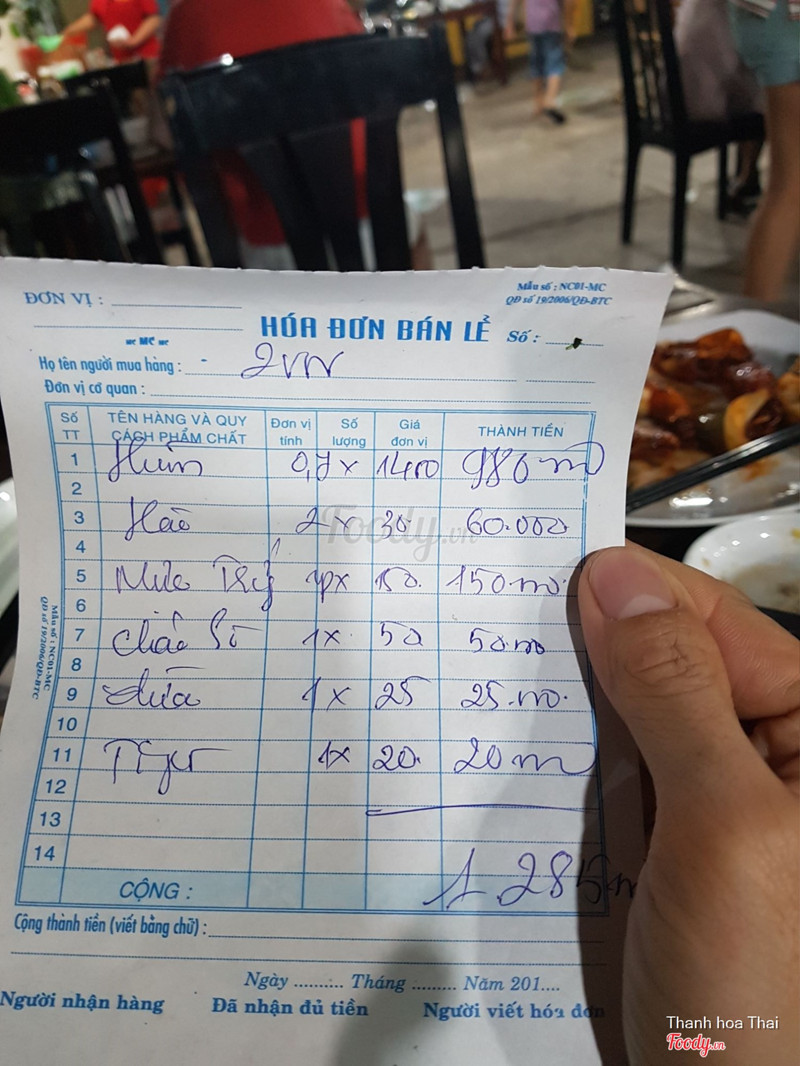 Mẫu số : NC01-MC
QĐ số 19/2006/QĐ-BTC
ĐƠN VỊ :
HÓA ĐƠN BÁN LẺ Số :
MC
Họ tên người mua hàng :
Đơn vị cơ quan :
Số TT TÊN HÀNG VÀ QUY CÁCH PHẨM CHẤT Đơn vị tính Số lượng Giá đơn vị THÀNH TIỀN
1 0,7 x 1400 980
2
3 Hào 2 x 30 60.000
4
5 Mực 1 x 150 150
6
7 Cháo Sò 1 x 50 50
8
9 Dừa 1 x 25 25
10
11 Tiger 1x 20 20
12
13
14
CỘNG : 1.285
Cộng thành tiền (viết bằng chữ) :
Ngày .......... Tháng ......... Năm 201....
Người nhận hàng Đã nhận đủ tiền Người viết hóa đơn
Mẫu số : NC01-MC
QĐ số 19/2006/QĐ-BTC
Foody.vn
Thanh hoa Thai
Foody.vn